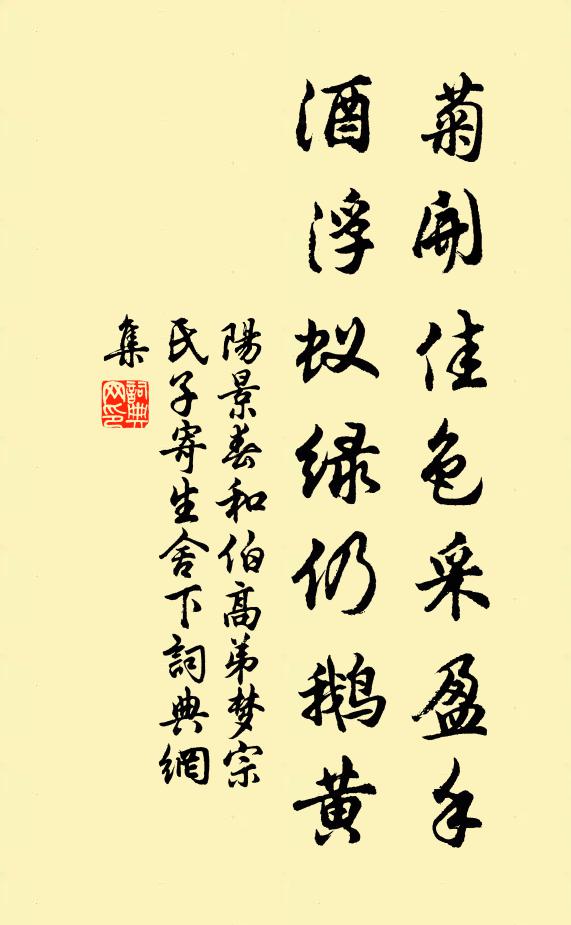 菊開佳色采盈手
酒浮蚁绿仍鹅黄
陽景春和伯高弟梦宗
氏子寄生舍下詞典網
集
詞典
网印